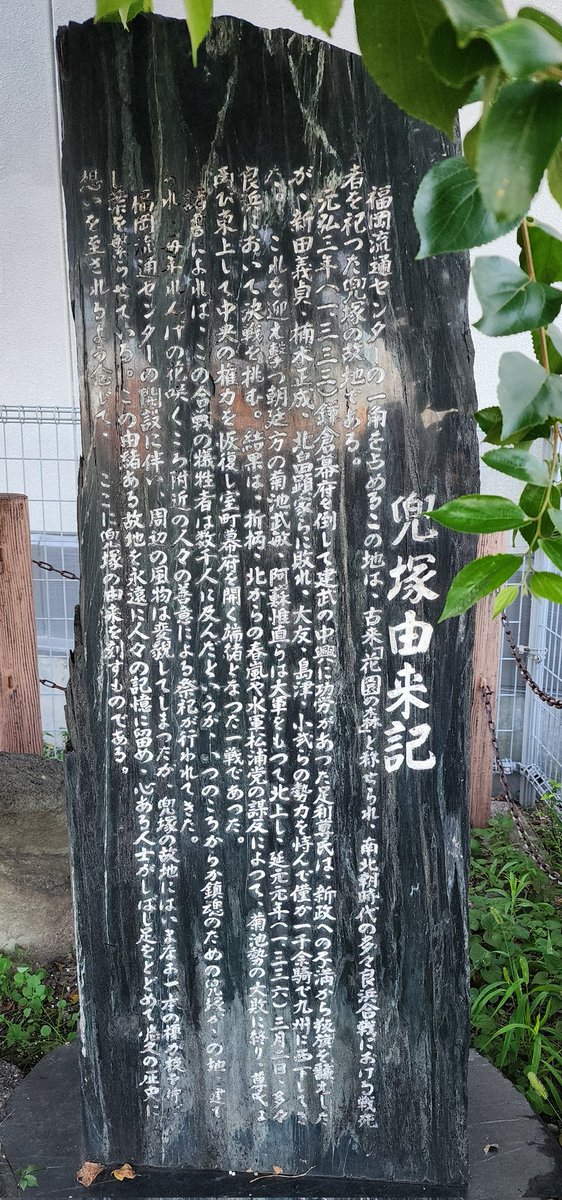 兜塚由来記
福岡流通センターの一角を占めるこの地は、古来「花園の森」と称せられ、南北朝時代の多々良浜合戦における戦死
者を祀つた兜塚の故地である。
元弘三年(一三三三)鎌倉幕府を倒して建武の中興に功労があつた足利尊氏は、新政への不満から叛旗を飜えした
が、新田義貞、楠木正成、北畠顕家らに敗れ、大友、島津、小弐らの勢力を恃んで僅か一千余騎で九州に西下してき
た。これを迎え撃つ朝廷方の菊池武敏、阿蘇惟直らは大軍をもつて北上し、延元元年(一三三六)三月二日、多々
良浜において決戦を挑む。結果は、折柄、北からの春嵐や水軍松浦党の謀反によつて、菊池勢の大敗に終り、尊氏は
再び東上して中央の権力を恢復し室町幕府を開く端緒となつた一戦であつた。
によれば、この合戦の犠牲者は数千人に及んだというが、いつのころからか鎮魂のための兜塚がこの地に建て
られ、毎年れんげの花咲くころ附近の人々の善意による祭祀が行われてきた。
福岡流通センターの開設に伴い、周辺の風物は変貌してしまつたが、兜塚の故地にはいまなお一本の
し葉を繁らせている。この由緒ある故地を永遠に人々の記憶に留め、心ある人士がしばし足をとどめて悠久の歴史に
想いを至されるよう念じて、ここに兜塚の由来を刻すものである。